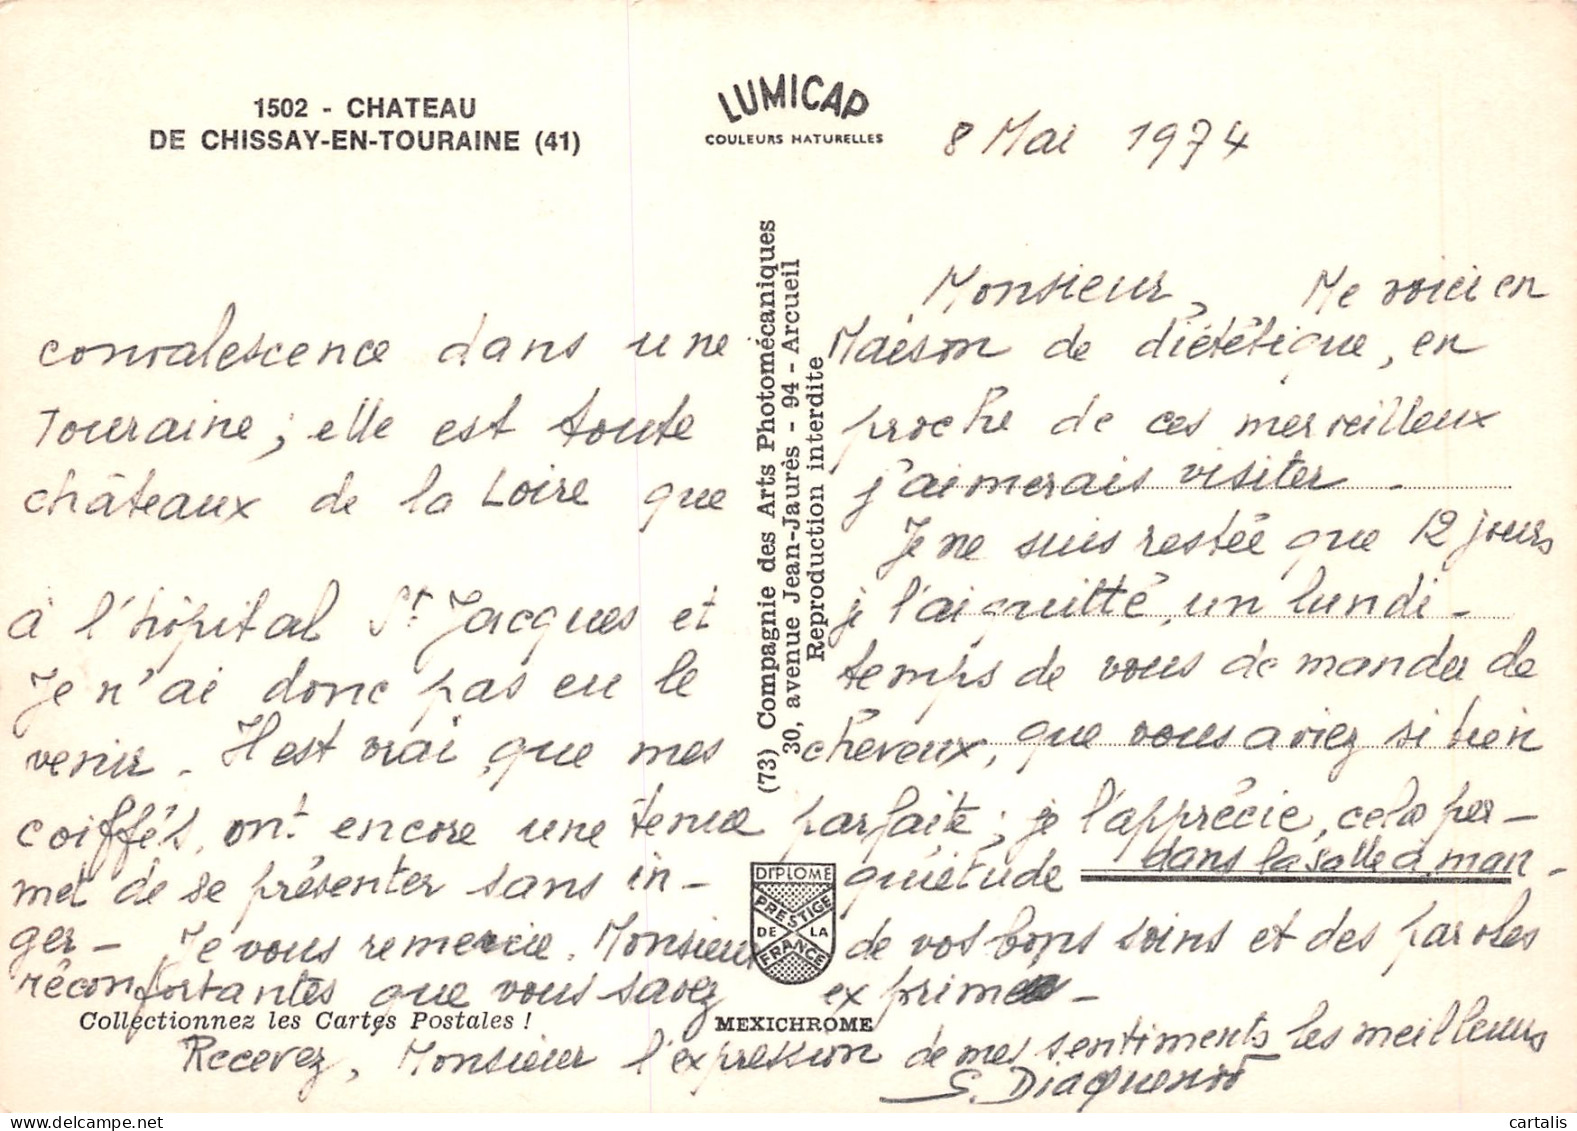 1502 - CHATEAU
DE CHISSAY-EN-TOURAINE (41)
LUMICAP
COULEURS NATURELLES
8 Mai 1974
Monsieur, Me voici en
convalescence dans une Maison de diététique, en
Touraine; elle est toute proche de ces merveilleux
châteaux de la Loire que j'aimerais visiter -
Je ne suis restée que 12 jours
à l'hôpital St Jacques et je l'ai quitté un lundi -
Je n'ai donc pas eu le temps de vous demander de
venir. Il est vrai que mes cheveux, que vous aviez si bien
coiffés, ont encore une tenue parfaite; je l'apprécie, cela per-
met de se présenter sans in- quiétude dans la salle à man-
ger - Je vous remercie, Monsieur de vos bons soins et des paroles
réconfortantes que vous savez exprimer -
Recevez, Monsieur l'expression de mes sentiments les meilleurs
S.
(73) Compagnie des Arts Photomécaniques
30, avenue Jean-Jaurès - 94 - Arcueil
Reproduction interdite
DIPLOME
PRESTIGE
DE LA
FRANCE
Collectionnez les Cartes Postales !
MEXICHROME
cartalis